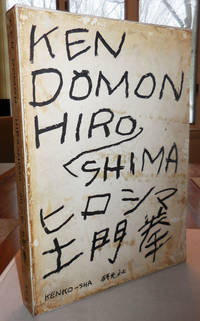 KEN
DOMON
HIRO
SHIMA
ヒロシマ
土門拳
KENKO-SHA